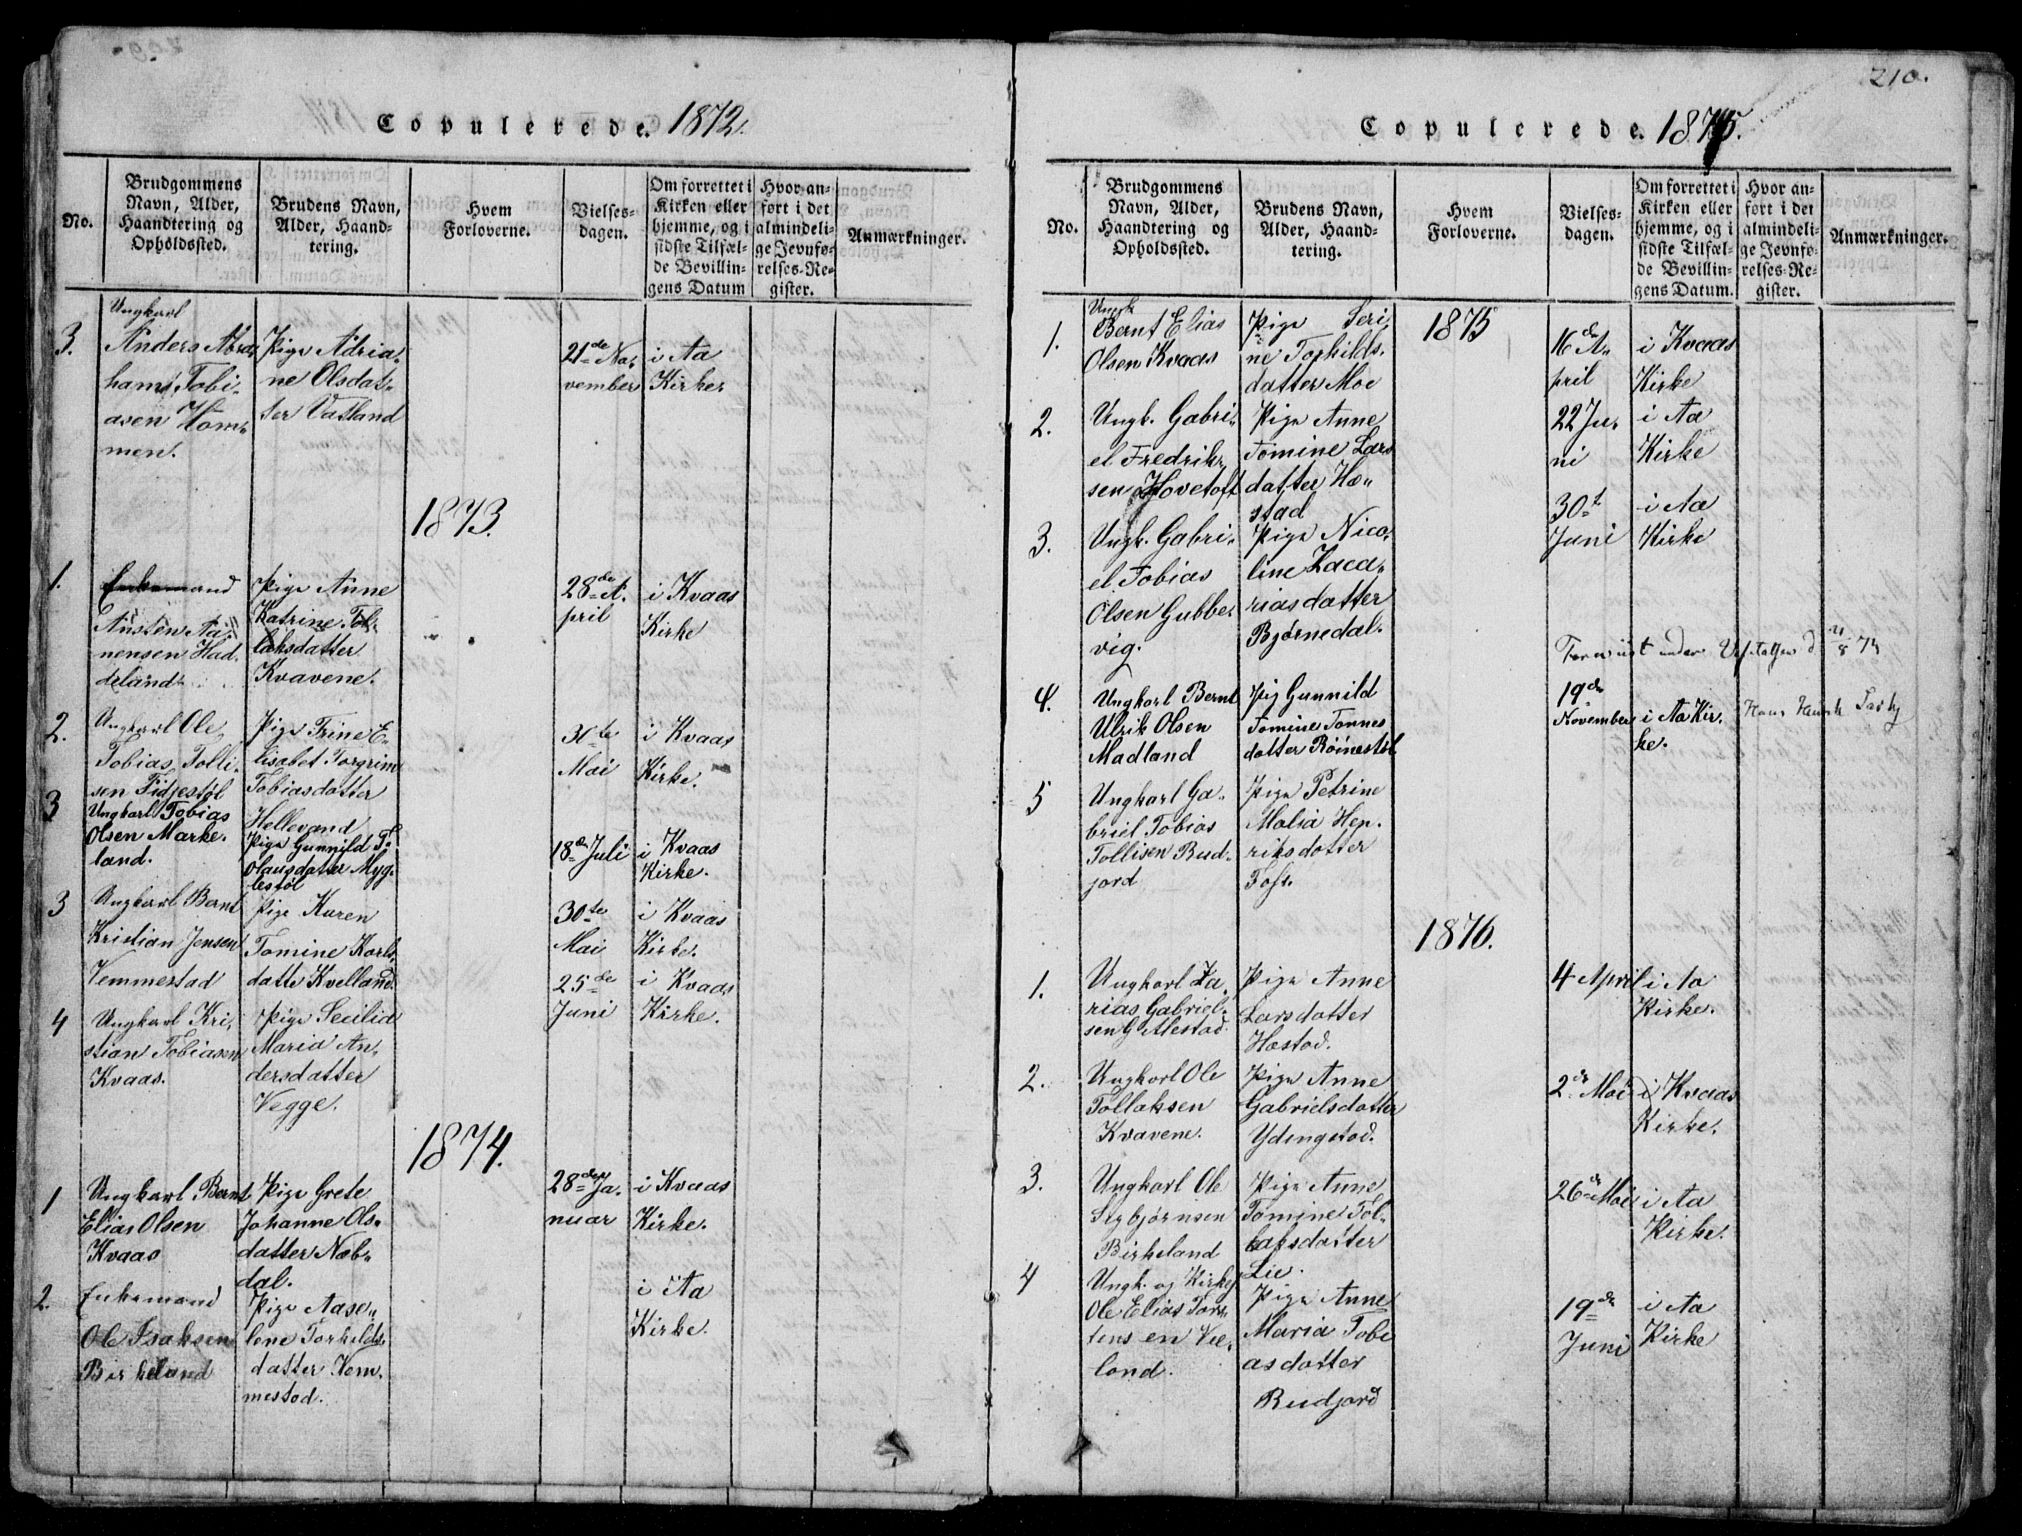 Copulerede. 1872.
No.
Brudgommens Navn, Alder, Haandtering og Opholdssted.
Brudens Navn, Alder, Haandtering.
Hvem Forloverne.
Vielsesdagen.
Om forrettet i Kirken eller hjemme, og i sidste Tilfælde Bevillingens Datum
Hvor anført i det almindelige Jevnførelses-Register.
Anmærkninger.
3.
Ungkarl
Anders Abra
hams Tobi-
asen Hom-
men.
Pige Adria-
ne Olsdat-
ter Vatland
21de No-
vember
i Aa
Kirke
1873.
1.
Enkemand
Austen Aa-
nensen Had-
deland
Pige Anne
Katrine Tol-
laksdatter
Kvavene.
28de A-
pril
i Kvaas
Kirke
2.
Ungkarl Ole
Tobias Tolli-
sen Fidjestøl
Pige Trine E-
lisabet Torgrim
Tobiasdatter
Hellevand
31te
Mai
i Kvaas
Kirke.
3
Ungkarl Tobias
Olsen Marke-
land.
Pige Gunnild T.
Olausdatter Myg-
lestøl
18de Juli
i Kvaas
Kirke.
3
Ungkarl Bernt
Kristian Jensen
Vemmestad
Pige Karen
Tomine Karls-
datte Kvelland
30te
Mai
i Kvaas
Kirke.
4
Ungkarl Kri-
stian Tobiasen
Kvaas.
Pige Secilia
Maria An-
dersdatter
Vegge.
25de
Juni
i Kvaas
Kirke.
1874.
1
Ungkarl Bernt
Elias Olsen
Kvaas
Pige Grete
Johanne Ols-
datter Neb-
dal.
28de Ja-
nuar
i Kvaas
Kirke.
2.
Enkemand
Ole Isaksen
Birkeland
Pige Aase-
lene Torkelds-
datter Vem-
mestad.
i Aa
Kirke.
210.
Copulerede. 1875.
No.
Brudgommens Navn, Alder, Haandtering og Opholdssted.
Brudens Navn, Alder, Haandtering.
Hvem Forloverne.
Vielsesdagen.
Om forrettet i Kirken eller hjemme, og i sidste Tilfælde Bevillingens Datum.
Hvor anført i det almindelige Jevnførelses-Register.
Anmærkninger.
1875
1.
Ungk
Bernt Elias
Olsen Kvaas
Pige Seri-
ne Torkilds-
datter Moe
16de A-
pril
i Kvaas
Kirke
2.
Ungk. Gabri-
el Fredrik-
sen Hovetoft
Pige Anne
Tomine Lars
datter Hæ-
stad
22 Ju-
ni
i Aa
Kirke
3.
Ungk. Gabri-
el Tobias
Olsen Gubbe-
vig.
Pige Nico-
line Zaca-
riasdatter
Bjørnedal.
30t
Juni
i Aa
Kirke
4.
Ungkarl Bernt
Ulrik Olsen
Madland
Pig Gunnild
Tomine Tønnes
datter Røinestøl
19de
November
i Aa Kir-
ke.
5
Ungkarl Ga-
briel Tobias
Tollisen Bud-
jord
Pige Petrine
Malia Hen-
riksdatter
Foss.
1876.
1.
Ungkarl Za-
rias Gabriel-
sen G Alestad.
Pige Anne
Larsdatter
Hæstad.
4 April
i Aa
Kirke.
2.
Ungkarl Ole
Tollaksen
Kvavene.
Pige Anne
Gabrielsdatter
Ydingstad.
2de Mai
i Kvaas
Kirke.
3.
Ungkarl Ole
Sigbjørnsen
Birkeland
Pige Anne
Tomine Tol-
laksdatter
Lie.
26de Mai
i Aa
Kirke.
4
Ungk. og Kirkes.
Ole Elias Tors-
tensen Vee-
land.
Pige Anne
Maria Tobi
asdatter
Budjord
19de
Juni
i Aa
Kirke